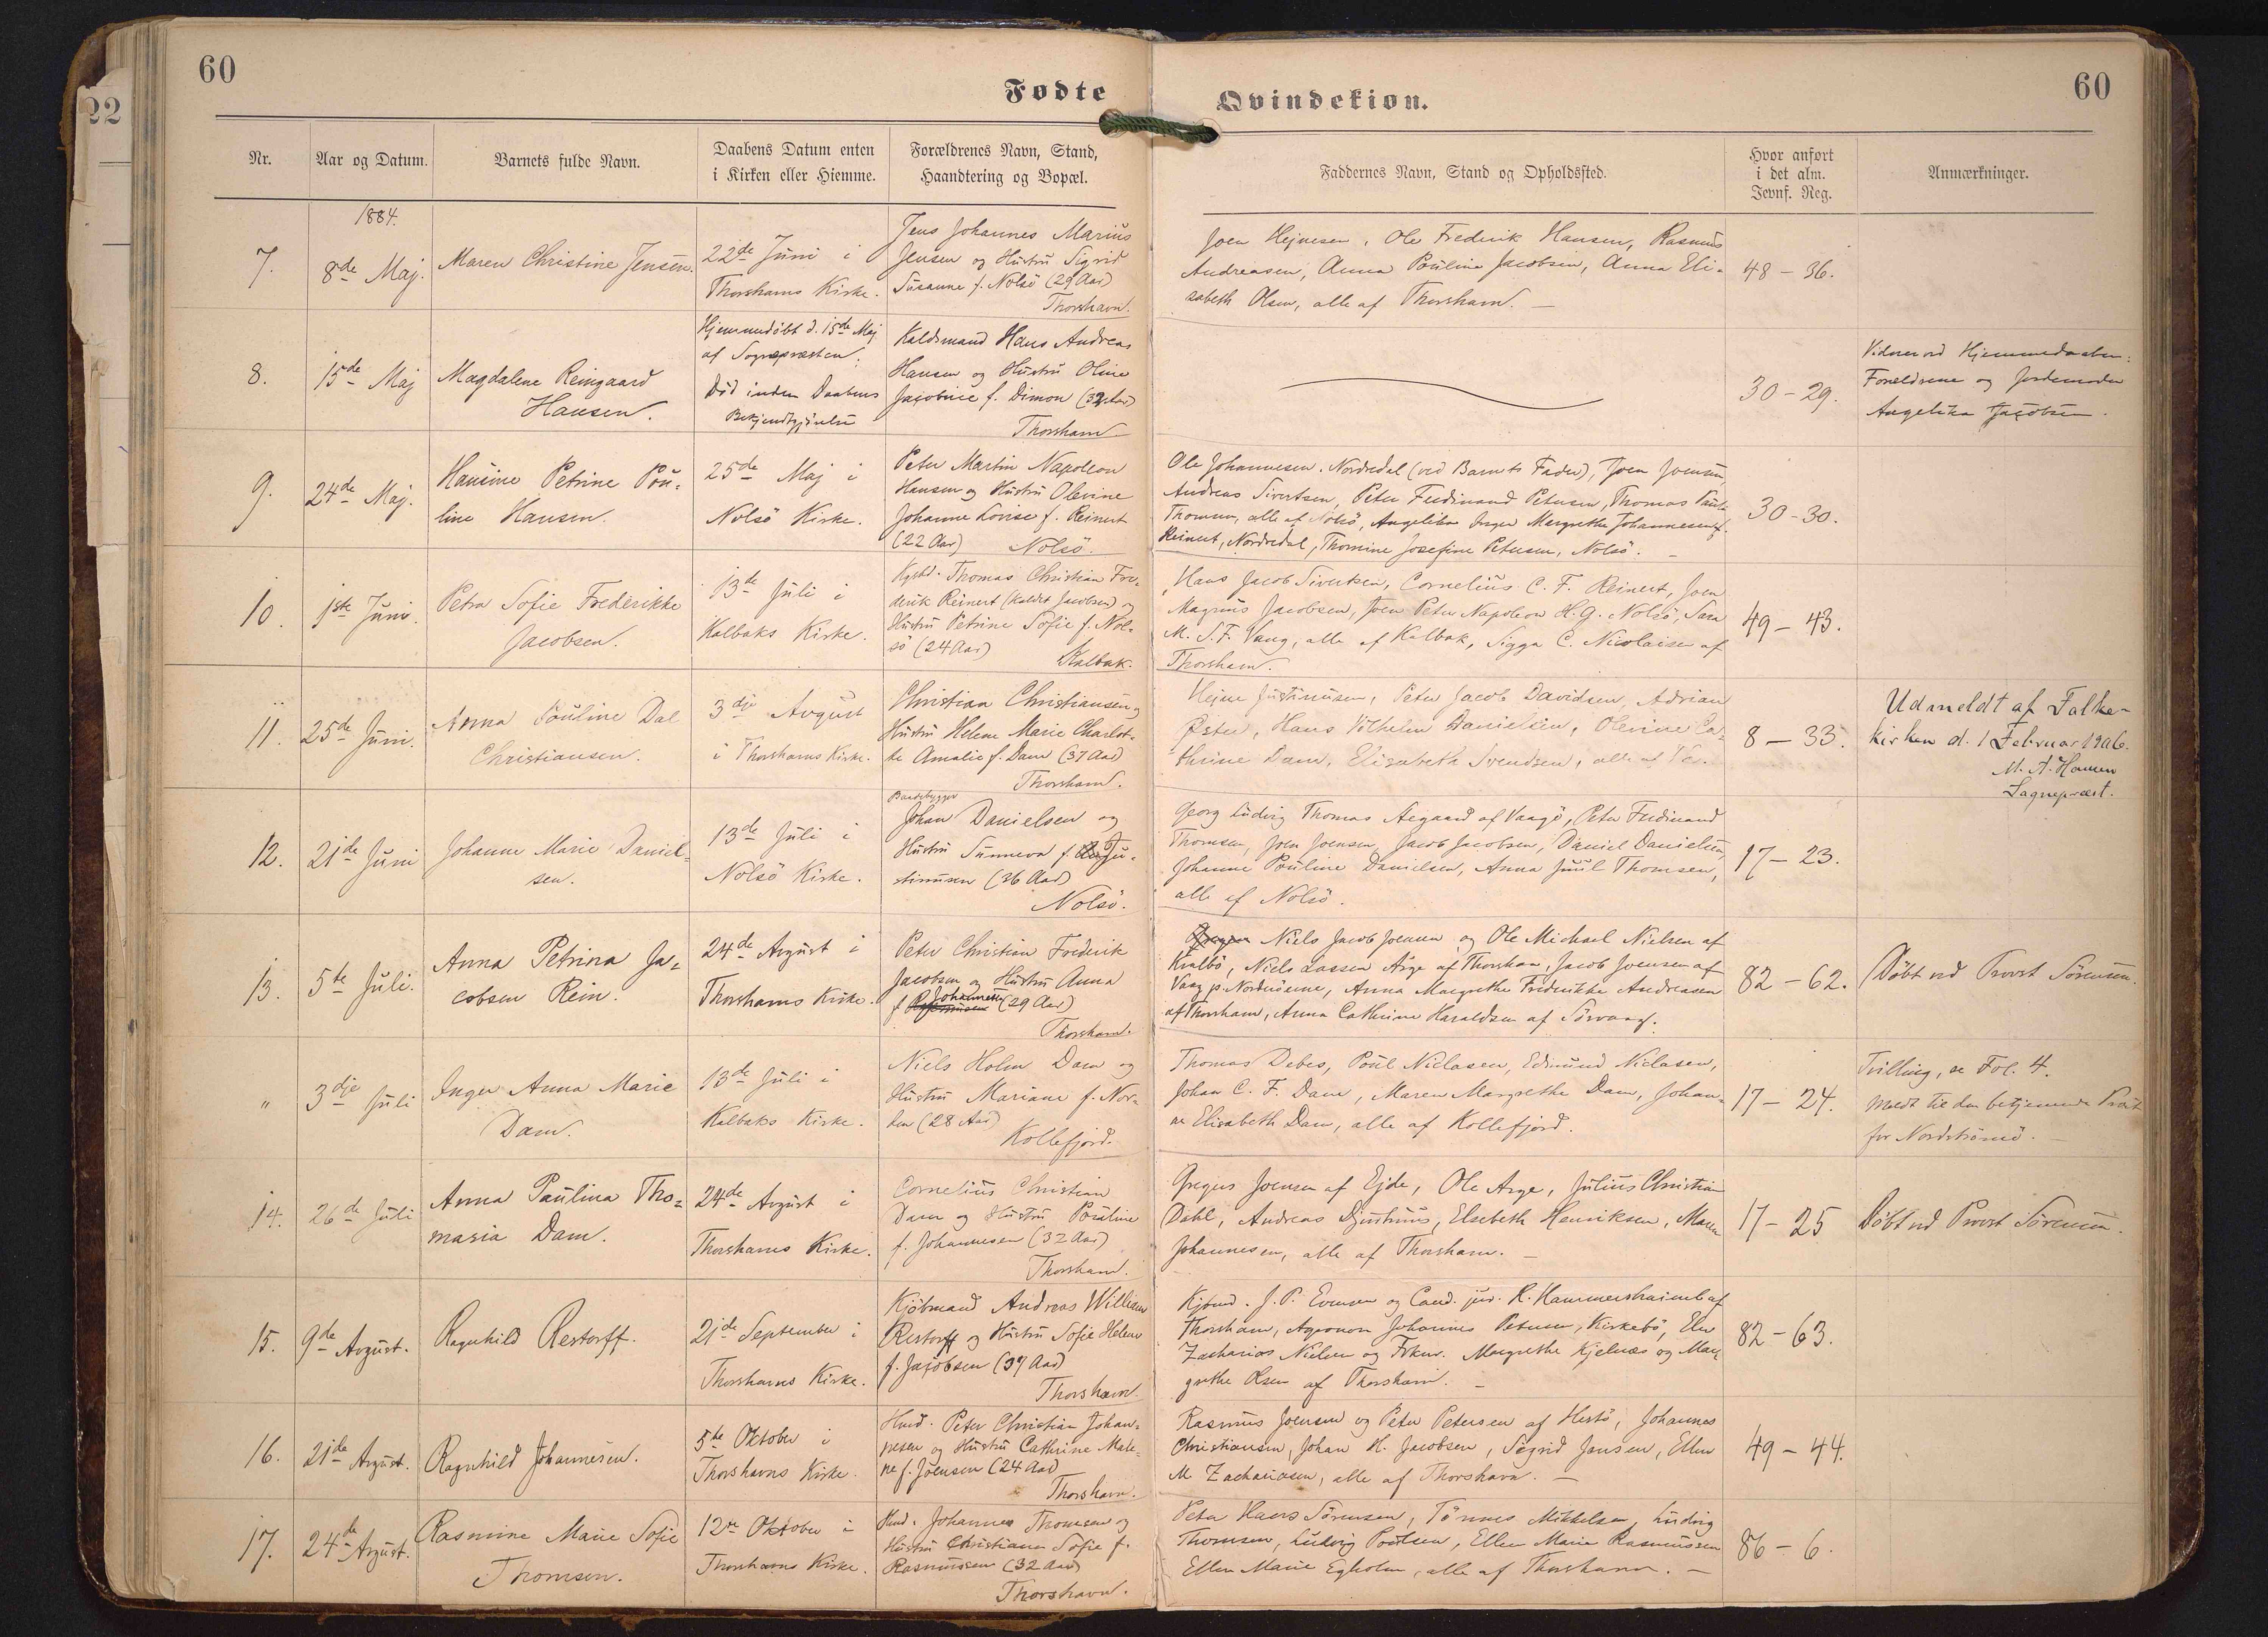 60
60
22
Fødte
Qvindekiøn.
Nr.
Aar og Datum.
Barnets fulde Navn.
Daabens Datum enten
i Kirken eller Hiemme.
Forældrenes Navn, Stand,
Haandtering og Bopæl.
Faddernes Navn, Stand og Opholdssted.
Hvor anført
i det alm.
Jevnf. Reg.
Anmærkninger.
1884.
7.
8de Maj.
Maren Christine Jensen.
22de Juni i
Thorshavns Kirke.
Jens Johannes Marius
Jensen og Hustru Sigrid
Susanne f. Nolsö (29 Aar)
Thorshavn.
Joen Hejnesen, Ole Frederik Hansen, Rasmus
Andreasen, Anna Pouline Jacobsen, Anna Eli-
sabeth Olsen, alle af Thorshavn. —
48 – 36.
8.
15de Maj
Magdalene Reingaard
Hansen.
Hjemmedöbt d. 15de Maj
af Sognepræsten;
Död inden Daabens
Bekjendtgjörelse
Hans Andreas
Hansen og Hustru Oline
Jacobine f. Dimon (32 Aar)
Thorshavn
30 – 29.
Vidner ved Hjemmedaaben:
Forældrene og Jordemoder
Angelika Jacobsen.
9.
24de Maj.
Hansine Petrine Pou-
line Hansen.
25de Maj i
Nolsö Kirke.
Peter Martin Napoleon
Hansen og Hustru Olevine
Johanne Lovise f. Reinert
(22 Aar) Nolsö.
Ole Johannesen, Nordredal (ved Barnets Fader), Joen Joensen,
Andreas Sivertsen, Peter Ferdinand Petersen, Thomas
Thomsen, alle af Nolsö, Angelika Inger Margrethe Johannesen f.
Reinert, Nordredal, Thomine Josefine Petersen, Nolsö. —
30 – 30.
10.
1ste Juni.
Petra Sofie Frederikke
Jacobsen.
13de Juli i
Kalbaks Kirke.
Thomas Christian Fre-
derik Reinert (kaldet Jacobsen) og
Hustru Petrine Sofie f. Nol-
sö (24 Aar)
Kalbak.
Hans Jacob Sivertsen, Cornelius C. F. Reinert, Joen
Magnus Jacobsen, Joen Peter Napoleon H. G. Nolsö, Sara
M. S. F. Vang, alle af Kalbak, Sigga C. Nicolaisen af
Thorshavn.
49 – 43.
11.
25de Juni.
Anna Pouline Dal
Christiansen.
3dje August
i Thorshavns Kirke.
Christian Christiansen og
Hustru Helene Marie Charlot-
te Amalie f. Dam (37 Aar)
Thorshavn.
Hejne Justinusen, Peter Jacob Davidsen, Adrian
Öster, Hans Vilhelm Danielsen, Olevine Ca-
thrine Dam, Elisabeth Svendsen, alle af
8 – 33.
Udmeldt af Folke-
kirken d. 1 Februar 1906.
M. A. Hansen
Sognepræst.
12.
21de Juni
Johanne Marie Daniel-
sen.
13de Juli i
Nolsö Kirke.
Baadebygger
Johan Danielsen og
Hustru Sunneva f. Ju-
stinusen (36 Aar)
Nolsö.
Georg Ludvig Thomas Aegaard af Vaagö, Peter Ferdinand
Thomsen, Joen Joensen, Jacob Jacobsen, Daniel Danielsen,
Johanne Pouline Danielsen, Anna Juul Thomsen,
alle af Nolsö.
17 – 23.
13.
5te Juli.
Anna Petrina Ja-
cobsen Rein.
24de August i
Thorshavns Kirke.
Peter Christian Frederik
Jacobsen og Hustru Anna
f. Johannesen (29 Aar)
Thorshavn.
Niels Jacob Joensen og Ole Michael Nielsen af
Kvalbö, Niels Lassen Arge af Thorshavn, Jacob Joensen af
Vaag p. Norderöerne, Anna Margrethe Frederikke Andreasen
af Thorshavn, Anna Cathrine Haraldsen af Sörvaag.
82 – 62.
Döbt ved Provst Sörensen.
"
3dje Juli
Inger Anna Marie
Dam.
13de Juli i
Kalbaks Kirke.
Niels Holm Dam og
Hustru Mariane f. Nor-
den (28 Aar)
Kollefjord.
Thomas Debes, Poul Niclasen, Edmund Niclasen,
Johan C. F. Dam, Maren Margrethe Dam, Johan-
ne Elisabeth Dam, alle af Kollefjord.
17 – 24.
Tvilling, se Fol. 4.
Meldt til den betjenende Præst
for Nordströmö. —
14.
26de Juli
Anna Paulina Tho-
masia Dam.
24de August i
Thorshavns Kirke.
Cornelius Christian
Dam og Hustru Pouline
f. Johannesen (32 Aar)
Thorshavn.
Gregers Joensen af Ejde, Ole Arge, Julius Christian
Dahl, Andreas Djurhuus, Elsebeth Henriksen, Maren
Johannesen, alle af Thorshavn. —
17 – 25
Döbt ved Provst Sörensen.
15.
9de August.
Ragnhild Restorff.
21de September i
Thorshavns Kirke.
Kjöbmand Andreas William
Restorff og Hustru Sofie Helene
f. Jacobsen (37 Aar)
Thorshavn.
Kjöbmd. J. P. Evensen og Cand. jur. R. Hammershaimb af
Thorshavn, Agronom Johannes Petersen, Kirkebö,
Zacharias Nielsen og Frkner. Margrethe Kjelnæs og Mar-
grethe Olsen af Thorshavn. —
82 – 63.
16.
21de August.
Ragnhild Johannesen.
5te Oktober i
Thorshavns Kirke.
Hmd. Peter Christian Johan-
nesen og Hustru Cathrine Male-
ne f. Joensen (24 Aar)
Thorshavn.
Rasmus Joensen og Peter Petersen af Hestö, Johannes
Christiansen, Johan H. Jacobsen, Sigrid Jensen, Ellen
M. Zachariasen, alle af Thorshavn. —
49 – 44.
17.
24de August.
Rasmine Marie Sofie
Thomsen.
12te Oktober i
Thorshavns Kirke.
Hmd. Johannes Thomsen og
Hustru Christiane Sofie f.
Rasmussen (32 Aar)
Thorshavn.
Peter Hans Sörensen, Tönnes Mikkelsen, Ludvig
Thomsen, Ludvig Poulsen, Ellen Marie Rasmussen
Ellen Marie Egholm, alle af Thorshavn. —
86 – 6.